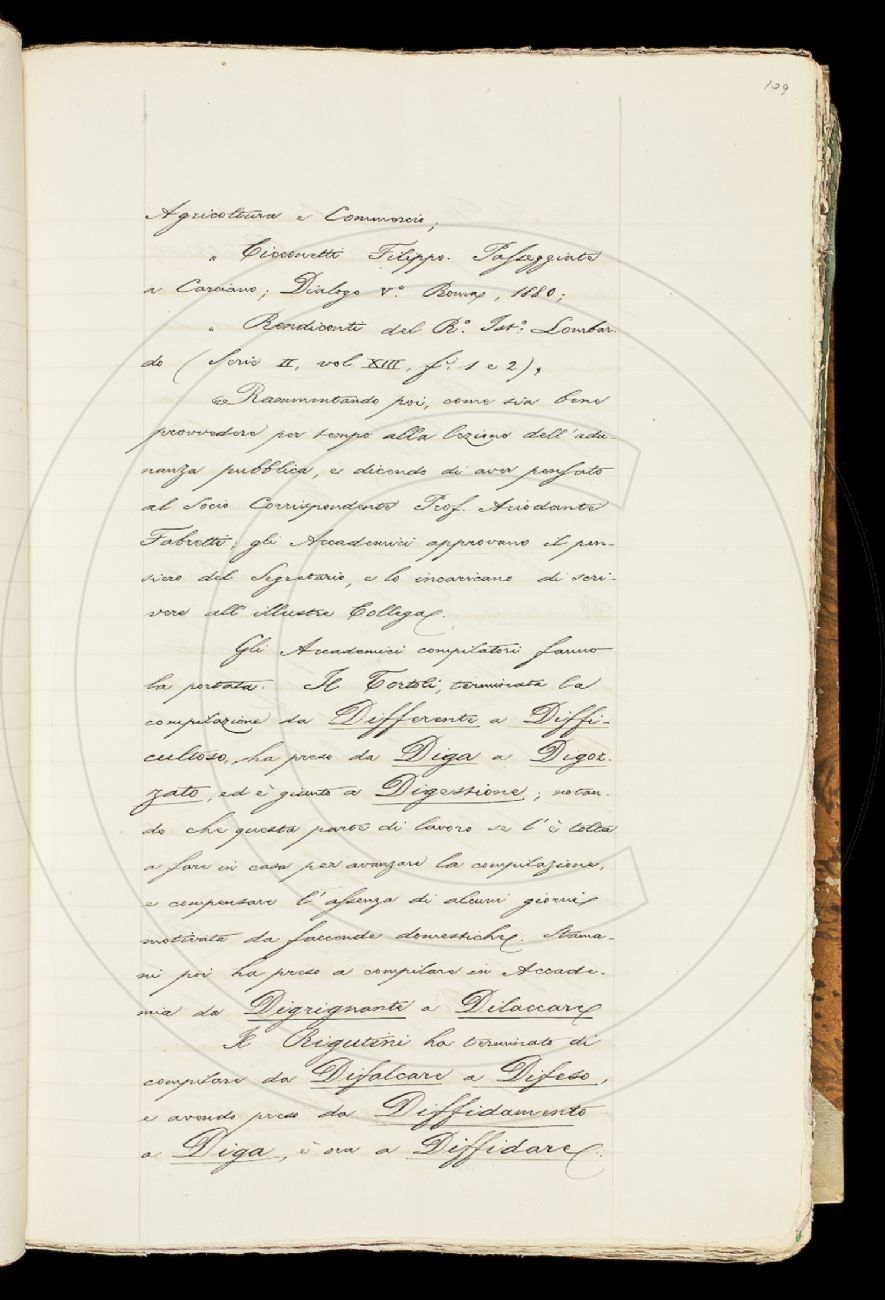 109
Agricoltura e Commercio;
" Cicconetti Filippo. Passeggiate
a Carciano; Dialogo V.º Roma, 1880;
" Rendiconti del R.º Ist.º Lombar-
do (Serie II, vol. XIII, f.i 1 e 2),
Rammentando poi, come sia bene
provvedere per tempo alla lezione dell'adu-
nanza pubblica, e dicendo di aver pensato
al Socio Corrispondente Prof. Ariodante
Fabretti; gli Accademici approvano il pen-
siero del Segretario, e lo incaricano di scri-
vere all'illustre Collega.
Gli Accademici compilatori fanno
la portata. Il Tortoli, terminata la
compilazione da Differente a Diffi-
cultoso, ha preso da Diga a Digoz-
zato, ed è giunto a Digestione; notan-
do che questa parte di lavoro se l'è tolta
a fare in casa per avanzare la compilazione,
e compensare l'assenza di alcuni giorni
motivata da faccende domestiche. Stama-
ni poi ha preso a compilare in Accade-
mia da Digrignante a Dilaccare
Il Rigutini ha terminato di
compilare da Difalcare a Difeso,
e avendo preso da Diffidamento
a Diga, è ora a Diffidare.